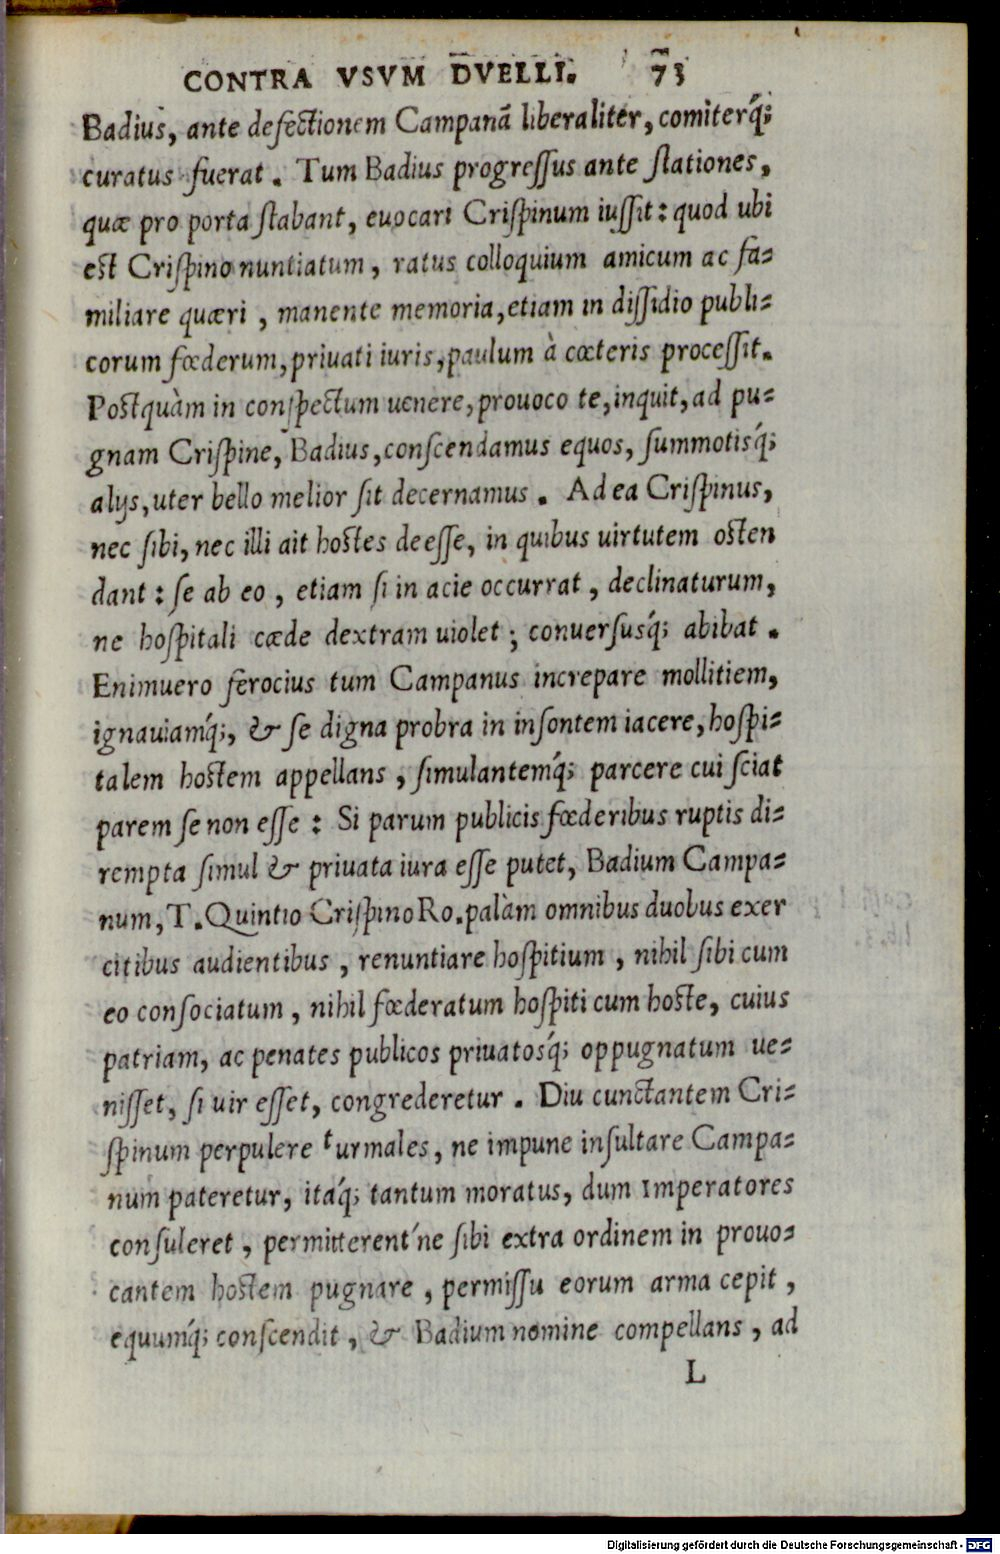 CONTRA VSVM DVELLI. 73
Badius, ante defectionem Campanā liberaliter, comiterq́;
curatus fuerat. Tum Badius progreſſus ante ſtationes,
quæ pro porta ſtabant, euocari Criſpinum iuſſit: quod ubi
eſt Criſpino nuntiatum, ratus colloquium amicum ac fa-
miliare quæri, manente memoria, etiam in diſſidio publi-
corum fœderum, priuati iuris, paulum à cæteris proceſſit.
Poſtquàm in conſpectum uenere, prouoco te, inquit, ad pu-
gnam Criſpine, Badius, conſcendamus equos, ſummotisq́;
alijs, uter bello melior ſit decernamus. Ad ea Criſpinus,
nec ſibi, nec illi ait hoſtes deeſſe, in quibus uirtutem oſten
dant: ſe ab eo, etiam ſi in acie occurrat, declinaturum,
ne hoſpitali cæde dextram uiolet; conuerſusq́; abibat.
Enimuero ferocius tum Campanus increpare mollitiem,
ignauiamq́;, & ſe digna probra in inſontem iacere, hoſpi-
talem hoſtem appellans, ſimulantemq́; parcere cui ſciat
parem ſe non eſſe: Si parum publicis fœderibus ruptis di-
rempta ſimul & priuata iura eſſe putet, Badium Campa-
num, T. Quintio Criſpino Ro. palàm omnibus duobus exer
citibus audientibus, renuntiare hoſpitium, nihil ſibi cum
eo conſociatum, nihil fœderatum hoſpiti cum hoſte, cuius
patriam, ac penates publicos priuatosq́; oppugnatum ue-
niſſet, ſi uir eſſet, congrederetur. Diu cunctantem Cri-
ſpinum perpulere turmales, ne impune inſultare Campa-
num pateretur, itaq́; tantum moratus, dum imperatores
conſuleret, permitterent'ne ſibi extra ordinem in prouo-
cantem hoſtem pugnare, permiſſu eorum arma cepit,
equumq́; conſcendit, & Badium nomine compellans, ad
L
Digitalisierung gefördert durch die Deutsche Forschungsgemeinschaft - DFG